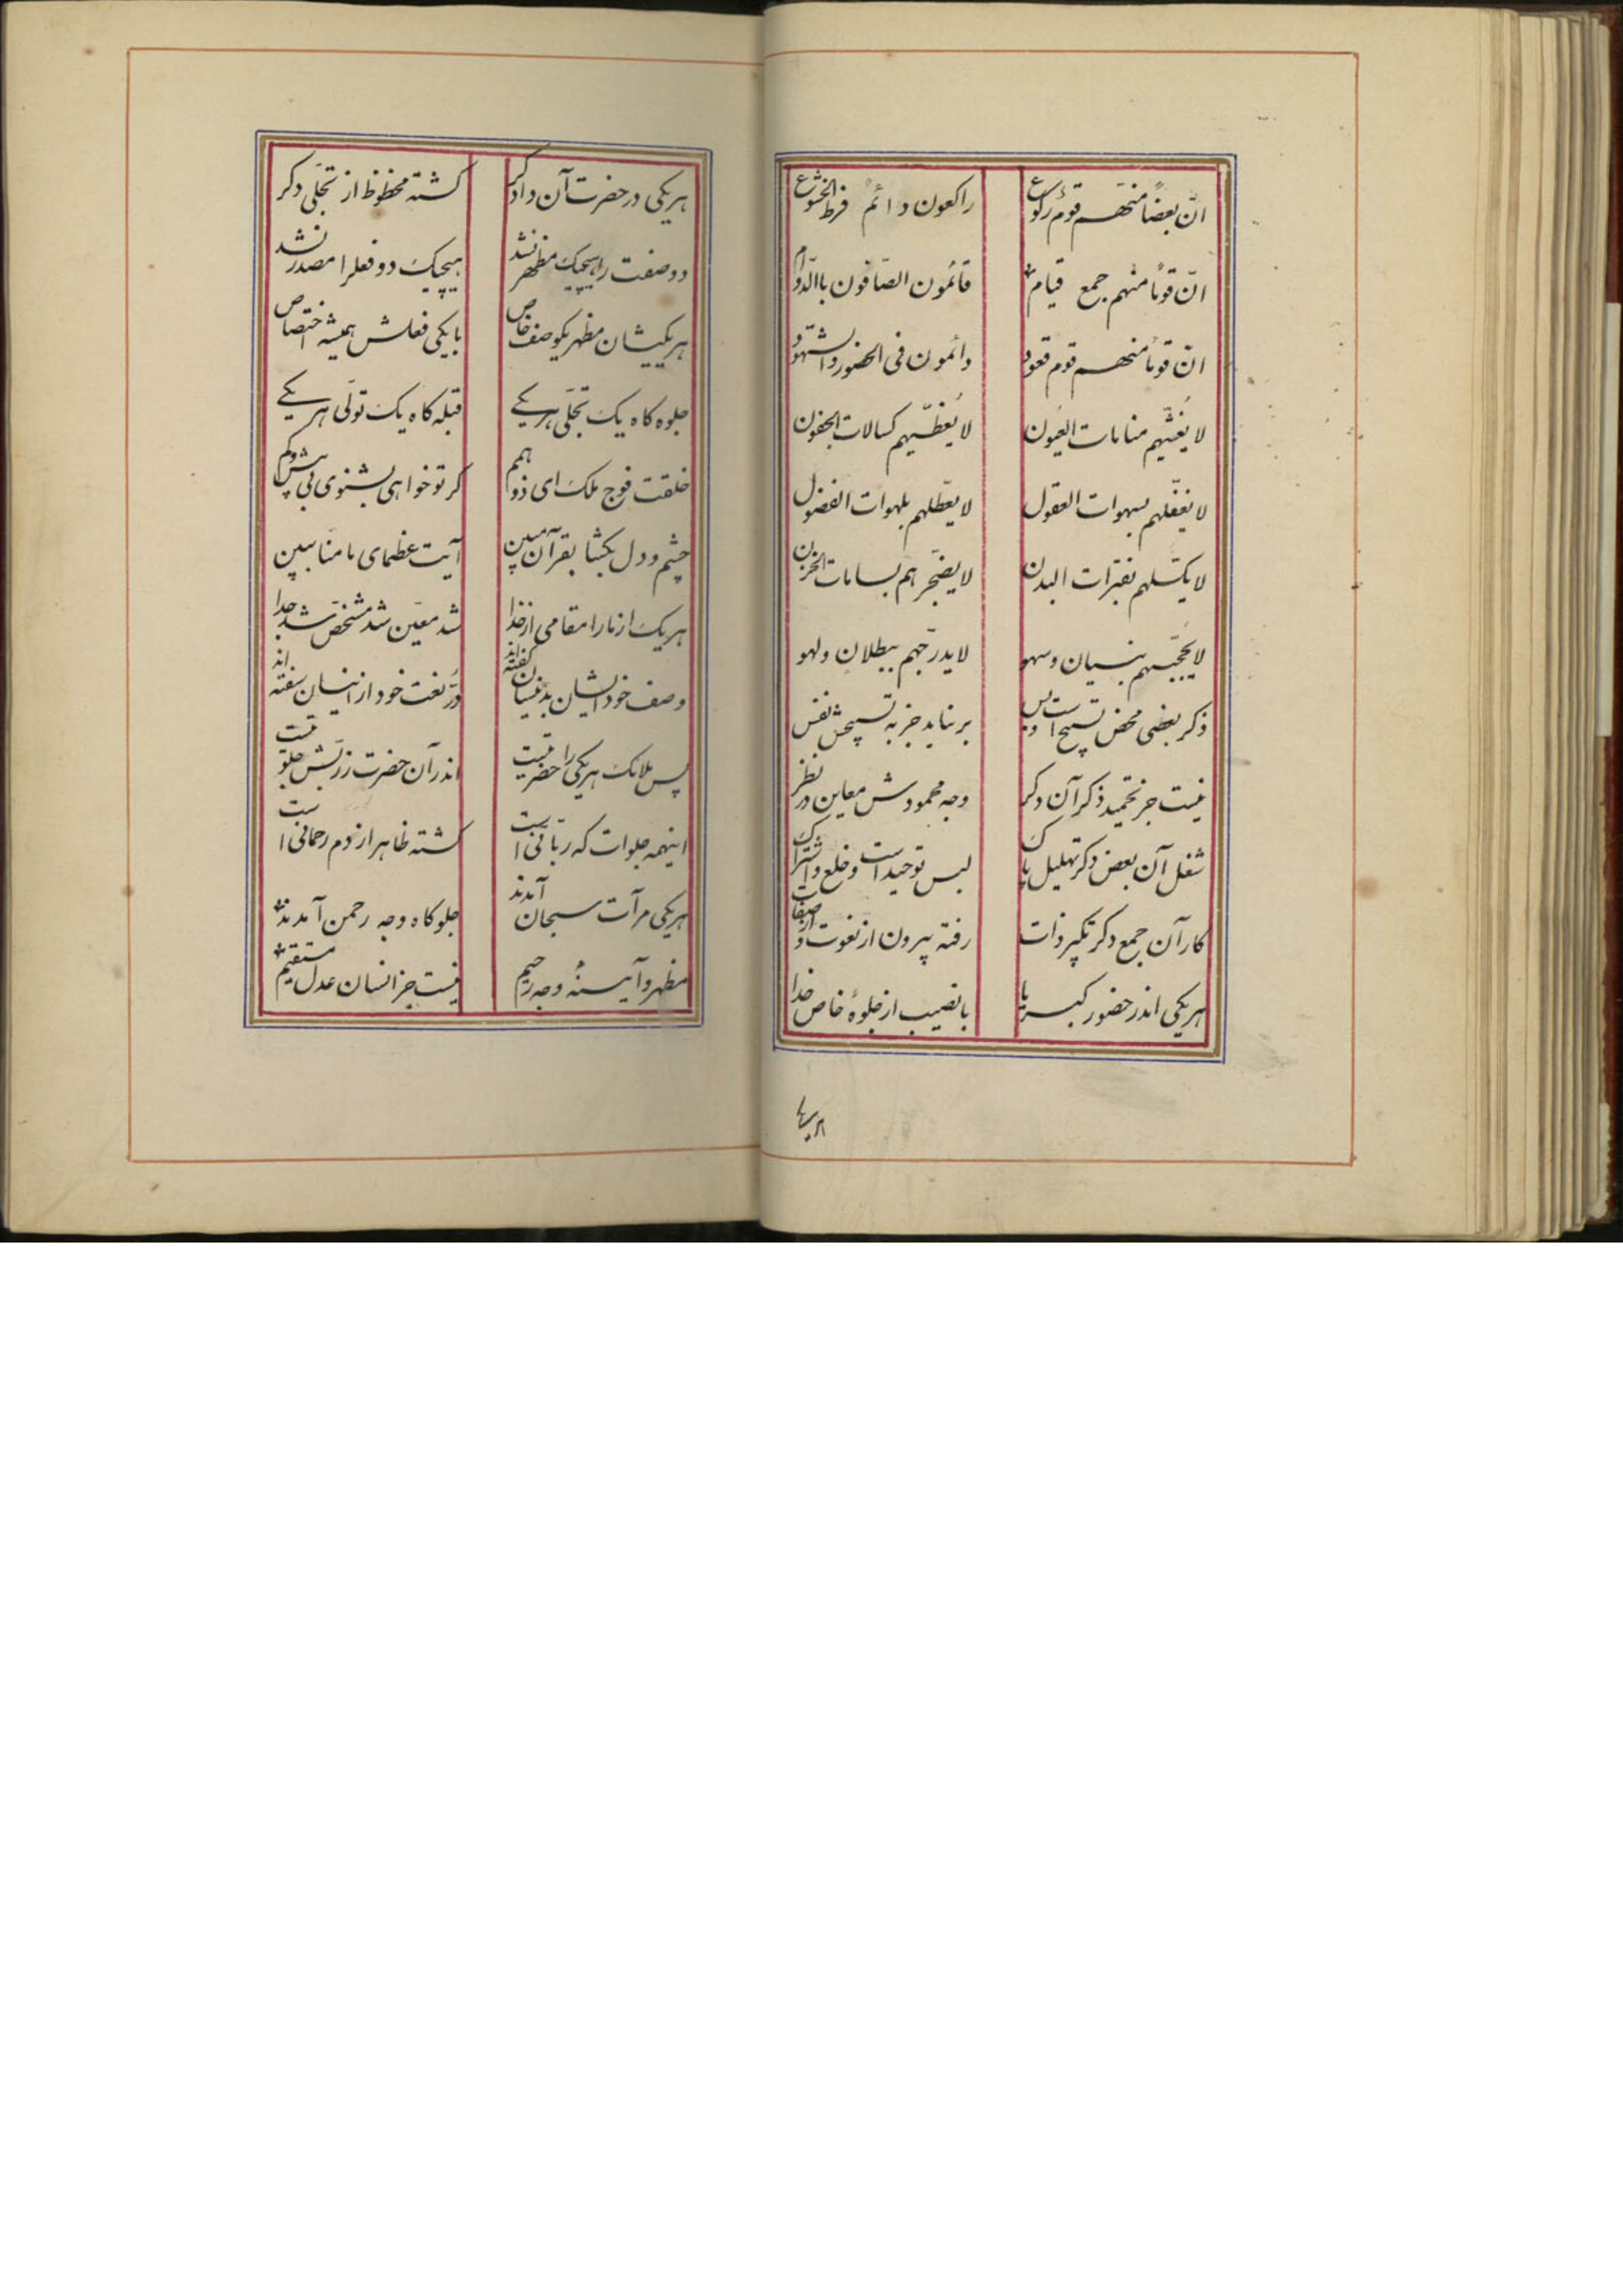 انّ بعضاً منهم قوم رکوع راکعون دائم فرط الخشوع
انّ قوماً منهم جمع قیام قائمون الصّافون باالدّوام
انّ قوماً منهم قوم قعود دائمون فی الحضور والشّهود
لا یُغشّیهم منامات العیون لا یُغطّیهم کسالات الجفون
لا یغفّلهم سهوات العقول لا یعطّلهم بلهوات الفضول
لا یکسّلهم بفترات البدن لا یضجّرهم بسامات الحزن
لا یحجّبهم بنسیان وسهو لا یدرّجهم ببطلان ولهو
ذکر بعضی محض تسبیح است وبس بر نیاید جز به تسبیحش نفس
نیست جز تحمید ذکر آن دکر وجه محمودش معاین در نظر
شغل آن بعض دکر تهلیل پاک لبس توحید است وخلع واشتراک
کار آن جمع دکر تکبیر ذات رفته بیرون از نعوت و از صفات
هریکی اندر حضور کبریا بانصیب از جلوهٔ خاص خدا
هریکی در حضرت آن دادکر کشته محظوظ از تجلّی دکر
دو صفت را هیچیک مظهر نشد هیچیک دو فعلرا مصدر نشد
هریکیشان مظهر یکوصف خاص بایکی فعلش همیشه اختصاص
جلوه کاه یک تجلّی هریکے قبله کاه یک تولّی هریکے
خلقت فوج ملک ای ذو همم کر تو خواهی بشنوی بی بیش وکم
چشم ودل بکشا بقرآن مبین آیت عظمای ما منّا ببین
هریک از مارا مقامی از خدا شد معیّن شد مشخّص شد جدا
وصف خود ایشان بدینسان کفته‌اند درّ نعت خود ازینسان سفته‌اند
پس ملائک هریکی را حضرتیست اندر آن حضرت زربّش جلوتیست
اینهمه جلوات که ربّانی است کشته ظاهر از دم رحمانی است
هریکی مرآت سبحان آمدند جلوکاه وجه رحمن آمدند
مظهر وآیینهٔ وجه رحیم نیست جز انسان عدل مستقیم
هریکی